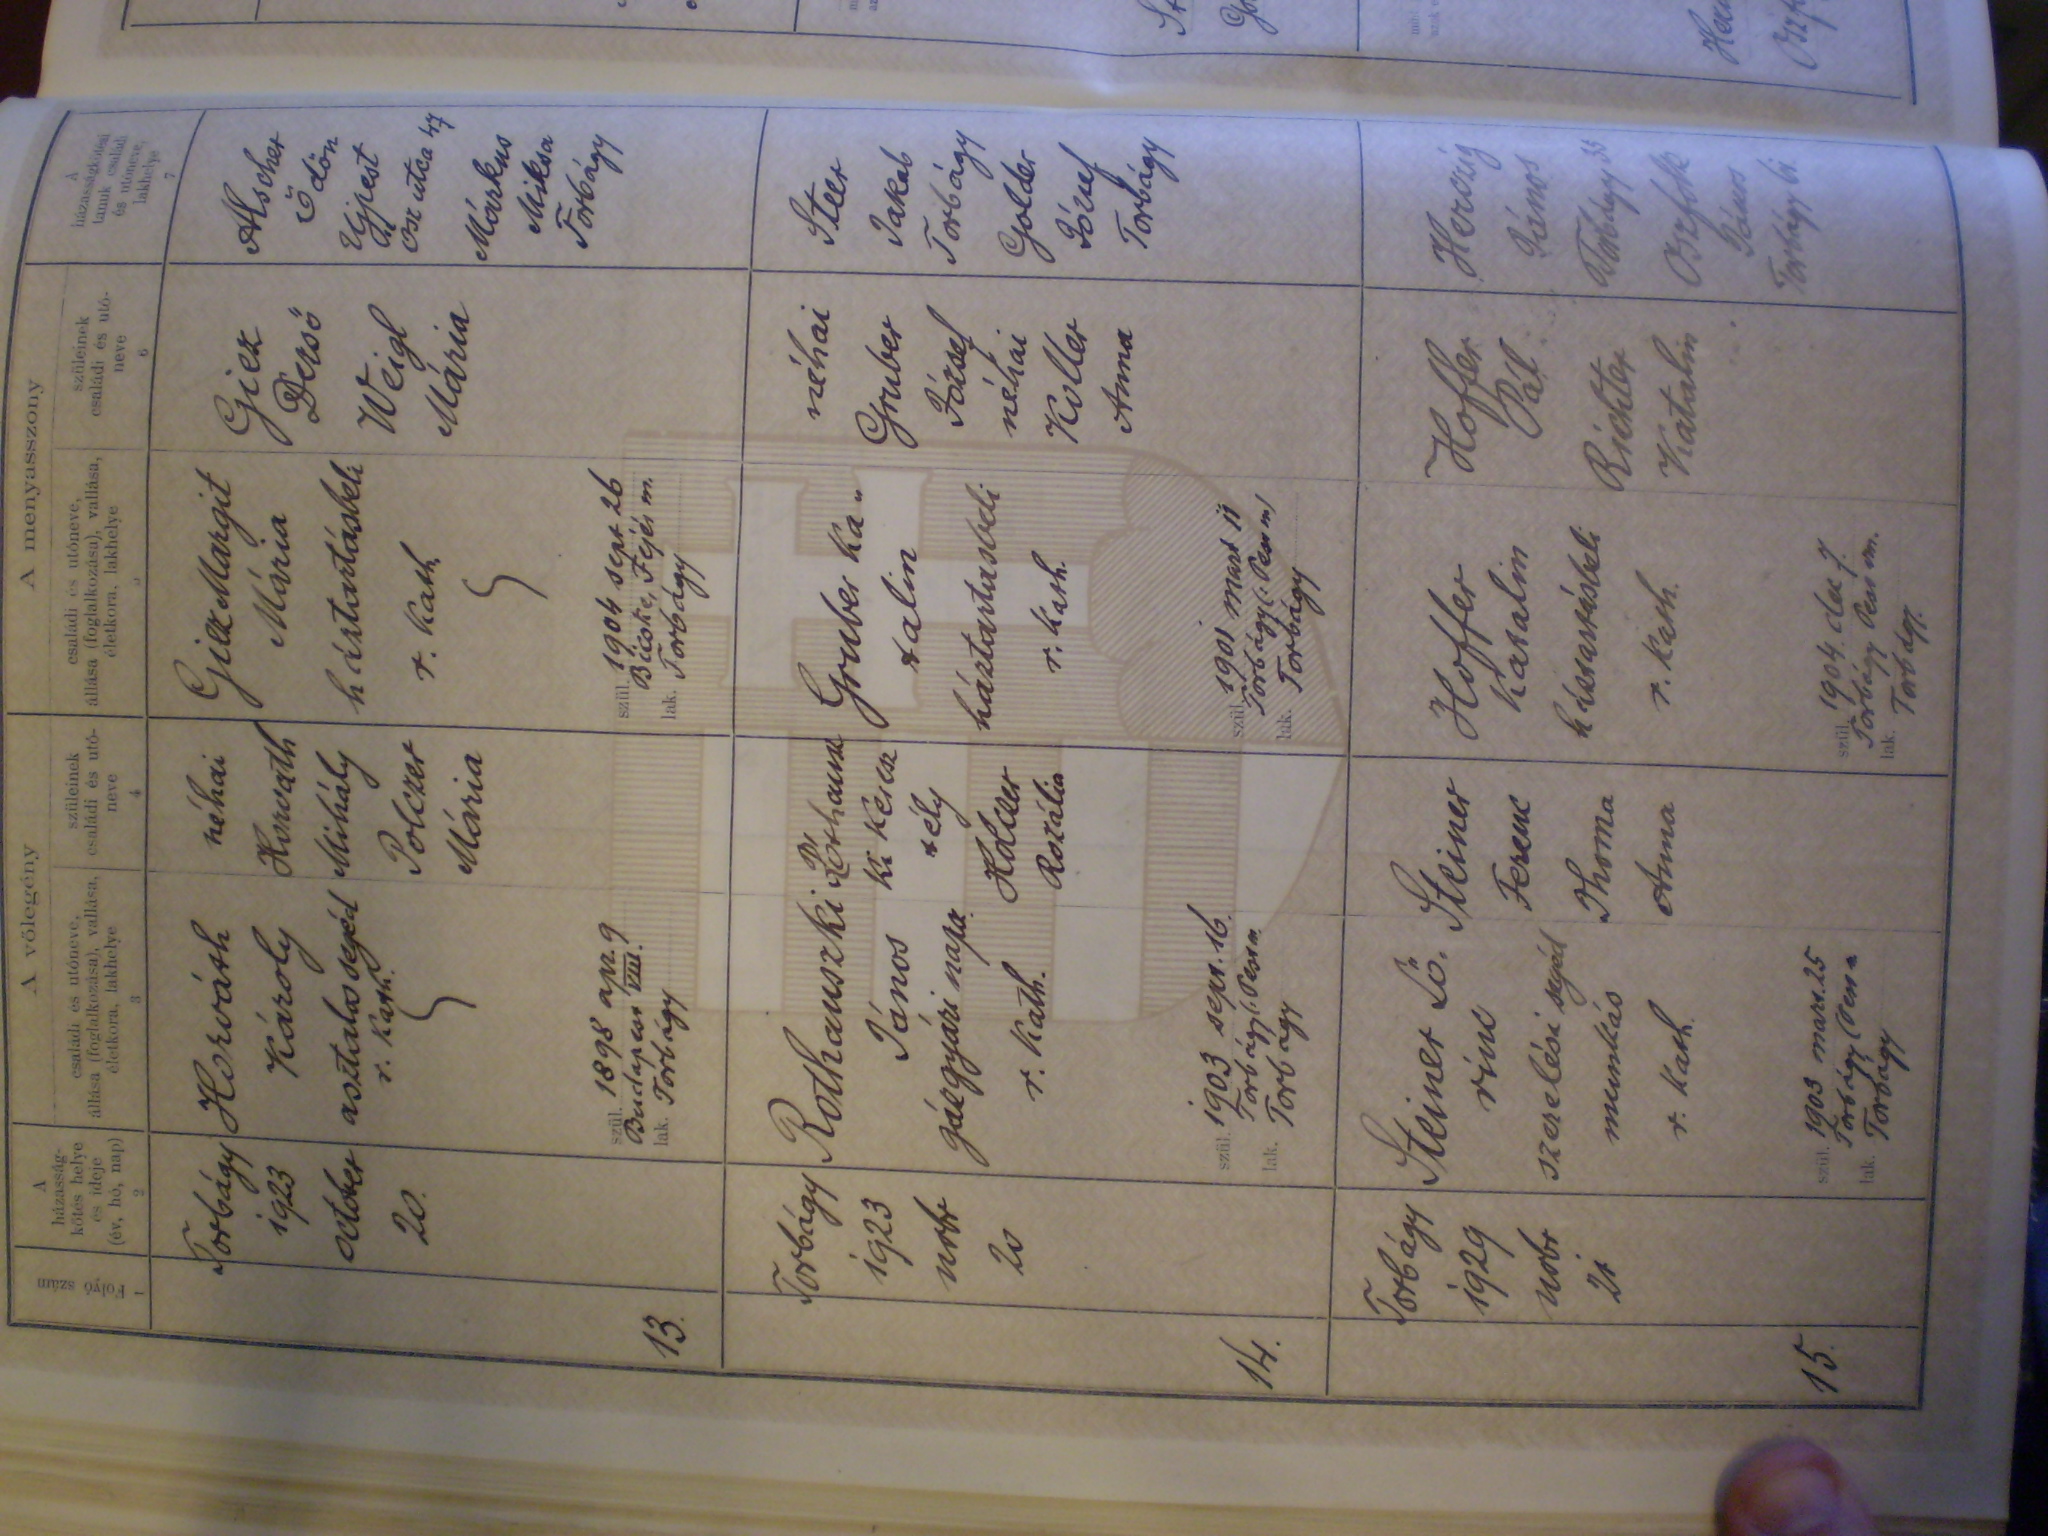 A völegény
A menyasszony
Folyó szám
A házasság-
kötés helye
és ideje
(év, hó, nap)
családi és utóneve,
állása (foglalkozása), vallása,
életkora, lakhelye
szüleinek
családi és utó-
neve
családi és utóneve,
állása (foglalkozása), vallása,
életkora, lakhelye
szüleinek
családi és utó-
neve
A
házasságkötési
tanuk családi
és utóneve,
lakhelye
1
2
3
4
6
7
13.
Torbágy
1923
october
20.
Horváth
Károly
asztalos segéd
r. kath.
szül. 1898 apr. 9
Budapest VIII.
lak. Torbágy
néhai
Horváth
Mihály
Polczer
Mária
Giez Margit
Mária
háztartásbeli
r. kath.
szül. 1904 sept 26
Bicske, Fejér m.
lak. Torbágy
Giez
Dezső
Weigl
Mária
Alscher
Ödön
Ujpest
Ősz utca 47
Márkus
Miksa
Torbágy
14.
Torbágy
1923
nobr
20
Rothauszki
János
gázgyári napsz.
r. kath.
szül. 1903 sept. 16.
Torbágy (Pest m.
lak. Torbágy
Holczer
Rozália
Gruber Ka„
talin
háztartásbeli
r. kath.
szül. 1901 mart 11
Torbágy (Pest m)
lak. Torbágy
néhai
Gruber
József
néhai
Koller
Anna
Steer
Jakab
Torbágy
Golder
József
Torbágy
15.
Torbágy
1929
nobr
21
Steiner Lő.
rinc
szerelési segéd
munkás
r. kath.
szül. 1903 mart. 25
Torbágy (Pest m
lak. Torbágy
Steiner
Ferenc
Thoma
Anna
Hoffer
Katalin
háztartásbeli
r. kath.
szül. 1904. dec 7.
Torbágy Pest m.
lak. Torbágy.
Hoffer
Pál
Richter
Katalin
Herczig
János
Torbágy 35
Oszfolk
János
Torbágy 61.